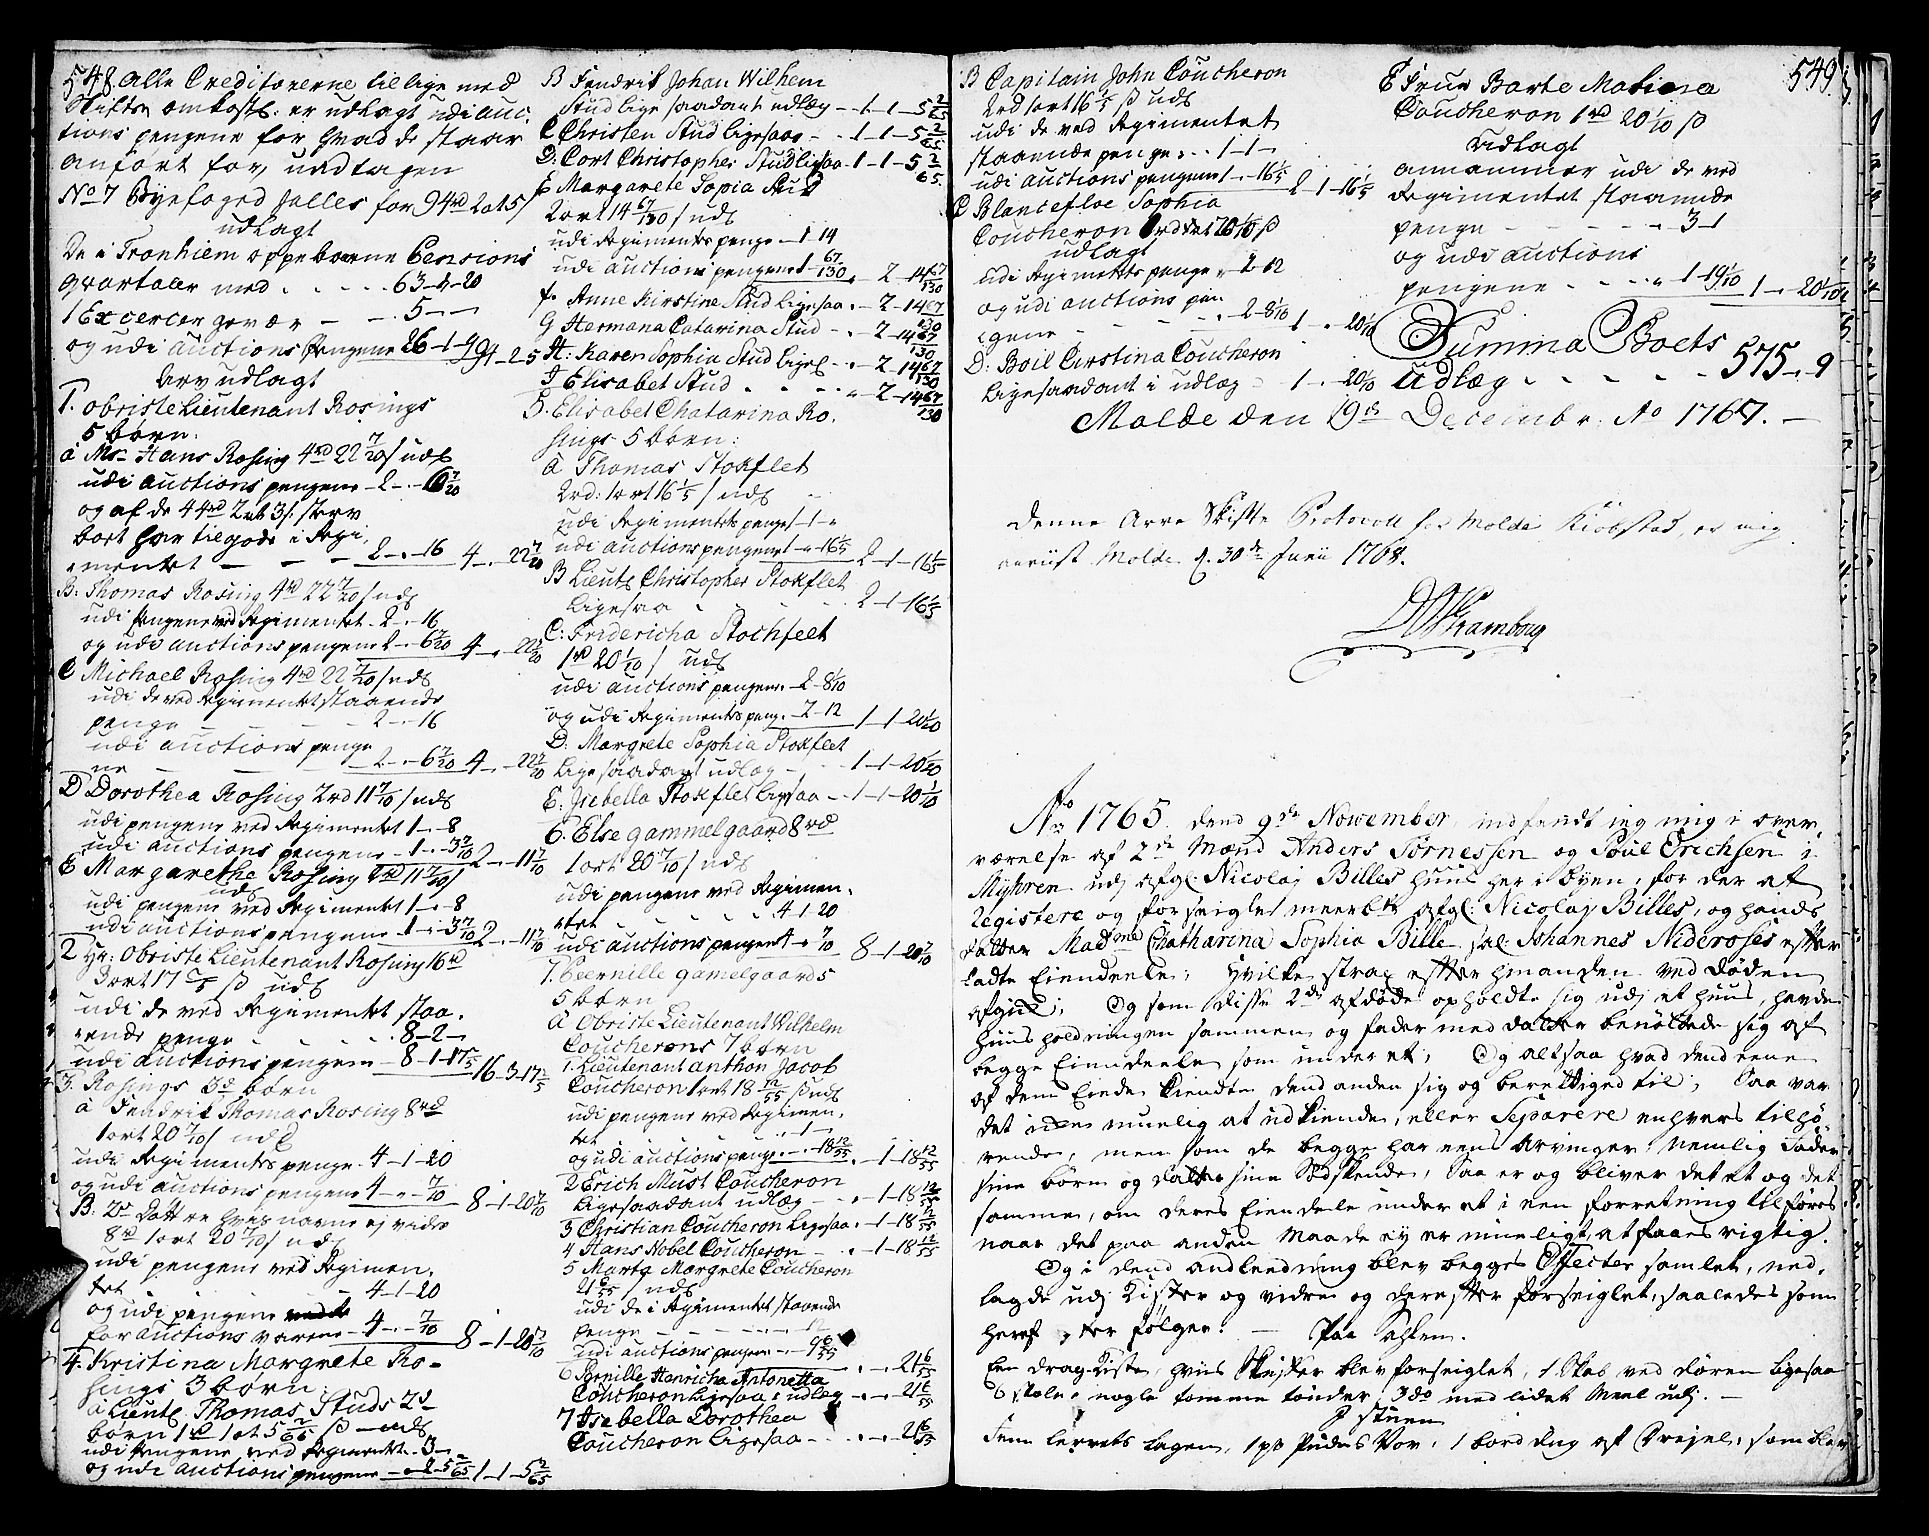 548. Alle Creditorerne tillige med
Skiftes omkostn: er udlagt udi auc-
tions pengene for hvad de staar
anført for, undtagen
No 7 Byefoged Jalles for 94rd 2ort 5/
udlagt
De i Tronhiem oppeborne Pensions
qvartaler med . . . . . 63-1-20
1 Excercer gevær - - . 5 - -
og udi Auctions Pengene 26-1-9 94-2-5
Arv udlagt
1. obristeLieutenant Rosings
5 børn:
a Mr Hans Rosing 4rd 22 7/20 / uds
udi auctions pengene - 2-.-6 7/20
og af de 44rd 2ort 3/: som
bort har tilgode i Regi-
mentet - - - 2-.-16 4-.-22 7/20
B: Thomas Rosing 4rd 22 7/20 / uds
udi pengene ved Regimentet . 2-.-16
og udi auctions pengene 2-.-6 7/20 4-.-22 7/20
C Michael Rosing 4rd 22 7/20 / uds
udi de ved Regimentet staaende
penge - - - 2-.-16
udi auctions penge
ne - - - 2-.-6 7/20 4-.-22 7/20
D Dorothea Rosing 2rd 11 7/10 / uds
udi pengene ved Regimentet 1-.-8
udi auctions pengene - 1-.-3 7/10 2-.-11 7/10
E Margarethe Rosing 2rd 11 7/10 /
uds
udi pengene ved Regimentet 1-.-8
udi auctions pengene - 1-.-3 7/10 2-.-11 7/10
2 Hr. Obriste Lieutenant Rosing 16rd
3ort 17 /5 ß uds
udi de ved Regimentet staa-
ende penge . . . . . 8-2-
udi auctions pengene - 8-1-17 /5 16-3-17 /5
3. Rosings 3de børn
a Fendrik Thomas Rosing 8rd
1ort 20 7/10 / uds
udi Regiments penge . 4-1-20
og udi auctions pengene 4-.-7/10 8-1-20 7/10
B. 2de Døttre hvis navne ej vides
8rd 1ort 20 7/10 / uds
udi pengene ved Regimen-
tet - - - 4-1-20
og udi pengene
for auctions varene - 4-.-7/10 8-1-20 7/10
4. Kristina Margrete Ro-
sings 3 børn:
a Lieut. Thomas Studs 2d
børn 1rd 1ort 5 2/65 ß uds
udi Pengene ved Regimentet . 3-
og udi auctions pengene -.-2-5 2/65 1-1-5 2/65
B Fendrik Johan Wilhem
Stud lige saadant udlæg - - 1-1-5 2/65
C Christen Stud ligesaa - . 1-1-5 2/65
D: Cort Christopher Stud ligesaa - 1-1-5 2/65.
E Margarete Sopia Stud
2ort 14 67/130 / uds
udi Regiments penge - 1 14
udi auctions pengene 1- 67/130 . 2-14 67/130
f. Anne Kirstine Stud ligesaa . - 2-14 67/130
G Hermana Catarina Stud - . - 2-14 67/130
H: Karen Sophia Stud liges . - 2-14 67/130
J Elisabet Stud . . . . . - 2-14 67/130
5. Elisabet Chatarina Ro-
sings 5 børn:
a Thomas Stokflet
2rd: 1ort 16 1/5 / uds
udi Regimentets penge 1-1-
udi auctions pengene 1-.-16 1/5 2-1-16 1/5
B Lieut. Christopher Stokflet
ligesaa . . . . . . 2-1-16 1/5
C: Fridericha Stochfleet
1rd 20 1/10 / uds
udi auctions pengene . 2-8 1/10
og udi Regiments peng . - 2-12 1-1-20 1/10
D: Margrete Sophia Stokfleet
lige saadant udlæg - . . 1-1-20 1/10
E. Isebella Stokflet ligesaa - . 1-1-20 1/10
6. Else gammelgaard 8rd
1ort 20 7/10 / uds
udi pengene ved Regimen-
tet . . . . . 4-1-20
udi auctions pengene 4-.-7/10 8-1-20 7/10
7. Peernille gamelgaards
5 børn
a Obriste Lieutenant Wilhelm
Coucherons 7 børn
1. Lieutenant Anthon Jacob
Coucheron 1ort 18 12/55 ß uds
udi pengene ved Regimen-
tet . . . . -1-
og udi auctions penge . - . - 18 12/55 . - 1-18 12/55
2 Erich Must Coucheron
ligesaadant udlæg - . - 1-18 12/55
3 Christian Coucheron ligesaa . - 1-18 12/55
4 Hans Nobel Coucheron - . - 1-18 12/55
5 Marta Margrete Coucheron
21 6/55 / uds
udi de i Regimentet staaende
penge - - - . . 12
udi auctions pengene - . 9 6/55 . - . - 21 6/55
6 Pernille Henricha Antonetta
Coucheron ligesaa i udlæg - . - 21 6/55
7 Isebella Dorothea
Coucheron ligesaa - . . - . - 21 6/55
B Capitain John Coucheron
2rd 1ort 16 1/5 ß uds
udi de ved Regimentet
staaende penge . . . 1-1-
udi auctions pengene 1-.-16 1/5 2-1-16 1/5
C Blancefloe Sophia
Coucheron 1rd 20 1/10 ß
udlagt
udi Regimentets penge . 2-12
og udi auctions pen-
gene - - - . - 2-8 1/10 1-.-20 1/10
D: Boil Cirstina Coucheron
ligesaadant i udlæg - 1-.-20 1/10
549.
E Frue Barte Matiena
Coucheron 1rd 20 1/10 ß
udlagt
annammer udi de ved
Regimentet staaende
penge - - - - - . 3-1
og udi auctions
pengene - . . . . 1-19 1/10 1-.-20 1/10
Summa Boets
udlæg . - - - - 575-.-9
Molde den 19de Decembr: Ao 1767. -
Denne Arve Skifte Protocoll for Molde Kiøbstad, er mig
anviist Molde d. 30de Junii 1768.
Ao 1765. dend 9de November, indfandt ieg mig i over-
værelse af 2de Mænd Anders Tørnessen og Poul Erichsen i
Myhren udj afg: Nicolaj Billes huus her i byen, for der at
registere og forseigle meerbte afg: Nicolaj Billes, og hands
datter Madme Chatharina Sophia Bille sal: Johannes Nideroses effter-
ladte Eiendeele; Hvilke strax effter hinanden ved døden
afgik; Og som disse 2de afdøde opholdte sig udj et huus, havde
huusholdningen sammen og fader med datter benøttede sig af
begge Eiendeele som under et; Og altsaa hvad dend eene
af dem Eiede kiendte dend anden sig og berettiged til; Saa var
det icke mueligt at udkiende, eller Separere enhvers tilhø-
rende, men som de begge har eens Arvinger, nemlig Fader
sine børn og datter sine Sødskende, saa er og bliver det et og det
samme, om deres Eiendele under et i een forretning tilføres
naar det paa anden maade ey er mueligt at faaes rigtig.
Og i dend andleedning blev begges Effecter samlet, ned-
lagde udj Kister og vidre og dereffter forseiglet, saaledes som
heref ter følger: - Paa Sahlen.
Een drag-Kiste, hvis Skuffer blev forseiglet, 1 Skab ved døren ligesaa
6 stole, nogle tomme tønder, 3de med lidet Meel udj. -
I stuen
Fem lerrets Lagen, 1 pr Pudes Vor, 1 bord dug af Dreyel, som blev